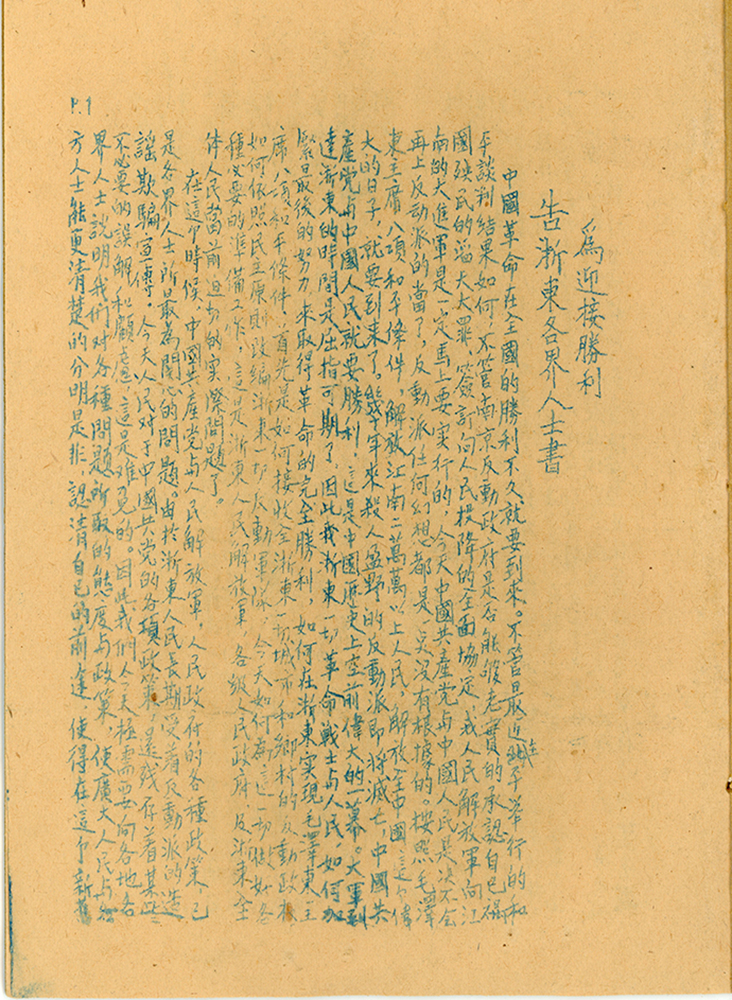 為迎接勝利
告浙東各界人士書
中國革命在全國的勝利不久就要到來。不管最近在北平舉行的和
平談判結果如何，不管南京反動政府是否能够老實的承認自己禍
國殃民的滔天大罪，簽訂向人民投降的全面協定，我人民解放軍向江
南的大進軍是一定馬上要实行的，今天中國共產党与中國人民是决不会
再上反动派的當了，反動派任何幻想都是一点没有根據的。按照毛澤
東主席八項和平條件，解放江南二萬萬以上人民，解放全中國，這个偉
大的日子，就要到來了，幾年來殺人盈野的反動派即将滅亡，中國共
產党与中國人民就要勝利，這是中國歷史上空前偉大的一幕。大軍到
達浙東的時間是屈指可期了，因此我浙東一切革命战士与人民，如何加
緊最後的努力，來取得革命的完全勝利，如何在浙東实現毛澤東主
席八項和平條件，首先是如何接收全浙東一切城市和鄉村的反動政权
如何依照民主原則改編浙東一切反動軍隊，今天如何為這一切做好各
種必要的準備工作，這是浙東人民解放軍，各級人民政府，及浙東全
体人民當前迫切的实際問題了。
在這个時候，中國共產党与人民解放軍，人民政府的各種政策，已
是各界人士所最為關心的問題。由於浙東人民長期受着反動派的造
謠欺騙宣傳，今天人民对于中國共党的各項政策，還残存着某些
不必要的誤解和顧慮，這是难免的。因此我們今天極需要向各地各
界人士說明我們对各種問題所取的態度与政策，使廣大人民与各
方人士能更清楚的分明是非，認清自己的前途，使得在這个新舊
P.1